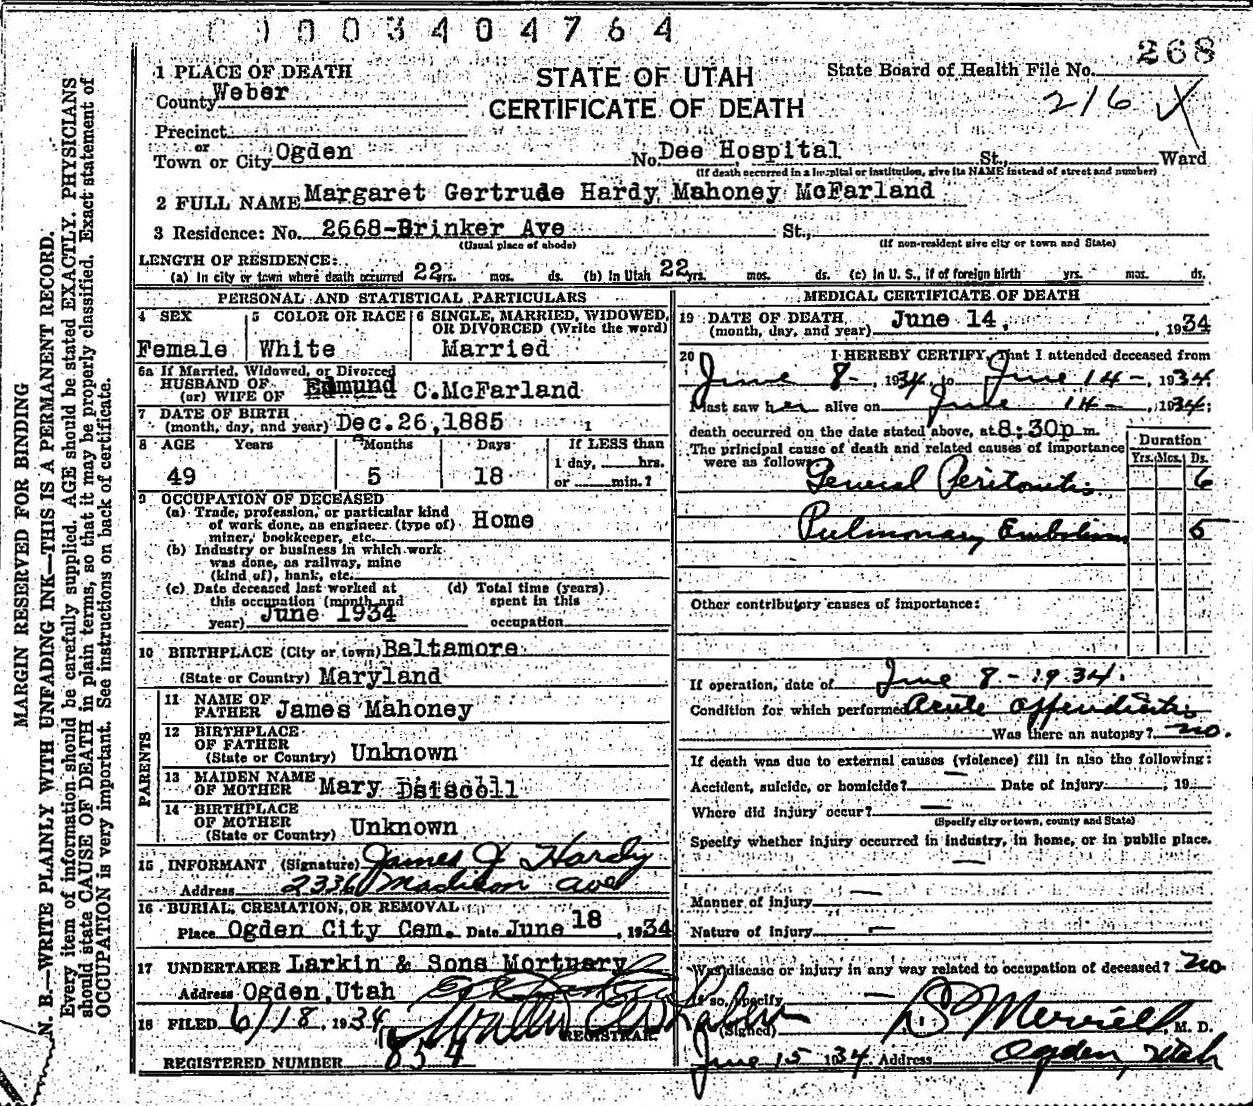 0003404764
268
STATE OF UTAH
CERTIFICATE OF DEATH
State Board of Health File No.
216 X
1 PLACE OF DEATH
County Weber
Precinct
or
Town or City Ogden No. Dee Hospital St., Ward
(If death occurred in a hospital or institution, give its NAME instead of street and number)
2 FULL NAME Margaret Gertrude Hardy Mahoney McFarland
3 Residence: No. 2668-Brinker Ave St.,
(Usual place of abode) (If non-resident give city or town and State)
LENGTH OF RESIDENCE:
(a) In city or town where death occurred 22 yrs. mos. ds. (b) In Utah 22 yrs. mos. ds. (c) In U. S., if of foreign birth yrs. mos. ds.
PERSONAL AND STATISTICAL PARTICULARS
4 SEX 5 COLOR OR RACE 6 SINGLE, MARRIED, WIDOWED,
OR DIVORCED (Write the word)
Female White Married
6a If Married, Widowed, or Divorced
HUSBAND OF
(or) WIFE OF Edmund C.McFarland
7 DATE OF BIRTH
(month, day, and year) Dec.26,1885
8 AGE Years Months Days If LESS than
1 day, hrs.
or min.?
49 5 18
9 OCCUPATION OF DECEASED
(a) Trade, profession, or particular kind
of work done, as engineer (type of)
miner, bookkeeper, etc. Home
(b) Industry or business in which work
was done, as railway, mine
(kind of), bank, etc.
(c) Date deceased last worked at
this occupation (month and
year) June 1934
(d) Total time (years)
spent in this
occupation
10 BIRTHPLACE (City or town) Baltamore
(State or Country) Maryland
PARENTS
11 NAME OF
FATHER James Mahoney
12 BIRTHPLACE
OF FATHER
(State or Country) Unknown
13 MAIDEN NAME
OF MOTHER Mary Driscoll
14 BIRTHPLACE
OF MOTHER
(State or Country) Unknown
15 INFORMANT (Signature) James J Hardy
Address 2336 Madison ave
16 BURIAL, CREMATION, OR REMOVAL
Place Ogden City Cem. Date June 18, 1934
17 UNDERTAKER Larkin & Sons Mortuary
Address Ogden,Utah
18 FILED 6/18, 1934
REGISTRAR.
REGISTERED NUMBER 834
MEDICAL CERTIFICATE OF DEATH
19 DATE OF DEATH
(month, day, and year) June 14, , 1934
20 I HEREBY CERTIFY, That I attended deceased from
June 8-, 1934 to June 14-, 1934.
I last saw her alive on June 14-, 1934;
death occurred on the date stated above, at 8:30p m.
The principal cause of death and related causes of importance
were as follows
Duration
Yrs. Mos. Ds.
General Peritonitis 6
Pulmonary Embolism 5
Other contributory causes of importance:
If operation, date of June 8-1934.
Condition for which performed Acute appendicitis
Was there an autopsy? no.
If death was due to external causes (violence) fill in also the following:
Accident, suicide, or homicide? — Date of injury , 19
Where did injury occur? —
(Specify city or town, county and State)
Specify whether injury occurred in industry, in home, or in public place.
—
Manner of injury —
Nature of injury —
Was disease or injury in any way related to occupation of deceased? no
If so, specify —
(Signed) Merrill, M. D.
June 15 1934 Address Ogden, Utah
MARGIN RESERVED FOR BINDING
N. B.—WRITE PLAINLY WITH UNFADING INK—THIS IS A PERMANENT RECORD.
Every item of information should be carefully supplied. AGE should be stated EXACTLY. PHYSICIANS
should state CAUSE OF DEATH in plain terms, so that it may be properly classified. Exact statement of
OCCUPATION is very important. See instructions on back of certificate.